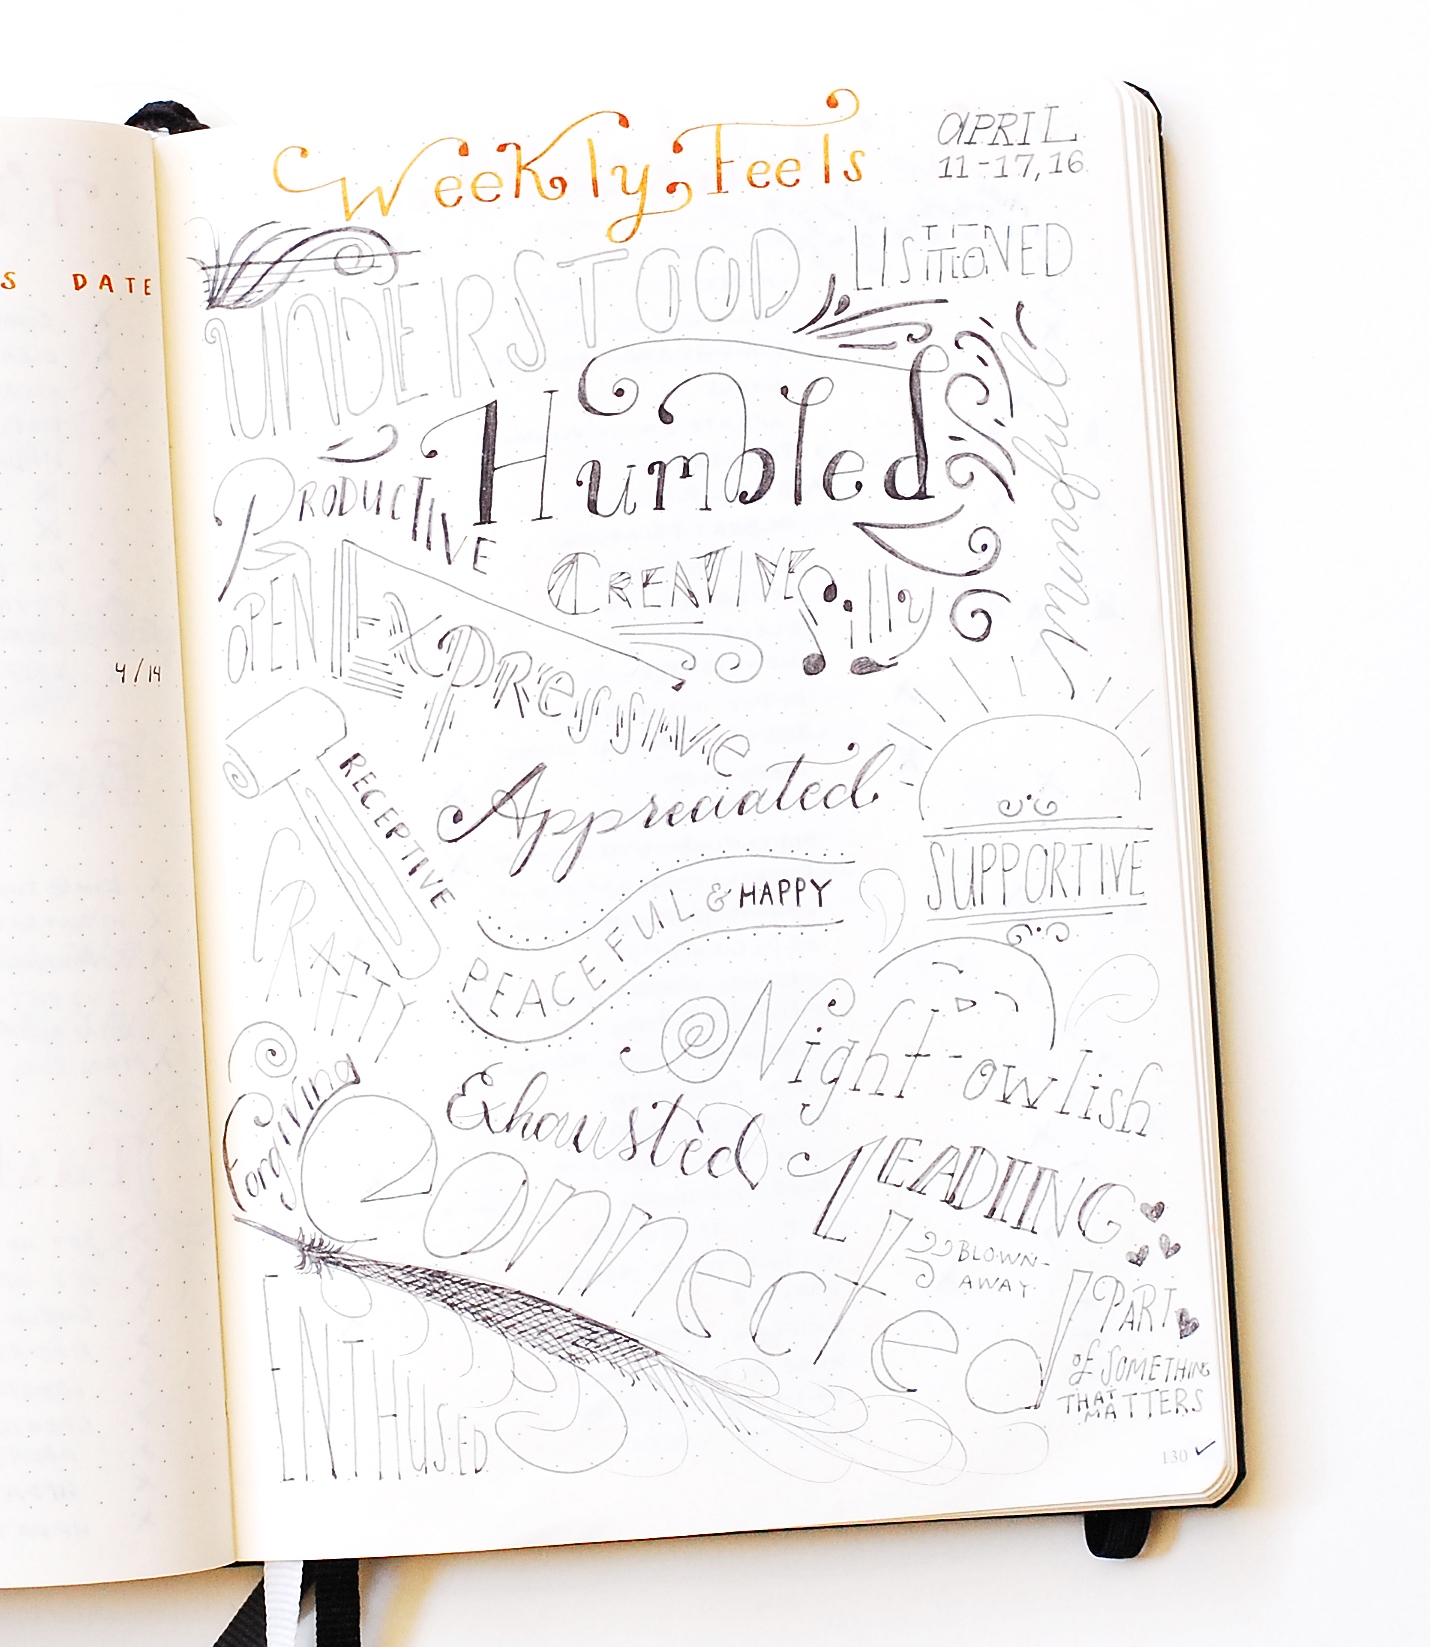 Weekly Feels
APRIL
11-17, 16
S DATE
4/14
UNDERSTOOD
Humbled
mindful
PRODUCTIVE
CREATIVE
Silly
OPEN
Expressive
RECEPTIVE
Appreciated
SUPPORTIVE
PEACEFUL & HAPPY
CRAFTY
Night-owlish
Forgiving
Exhausted
LEADING
Connected
BLOWN-
AWAY
PART
of SOMETHING
THAT
MATTERS
ENTHUSED
130